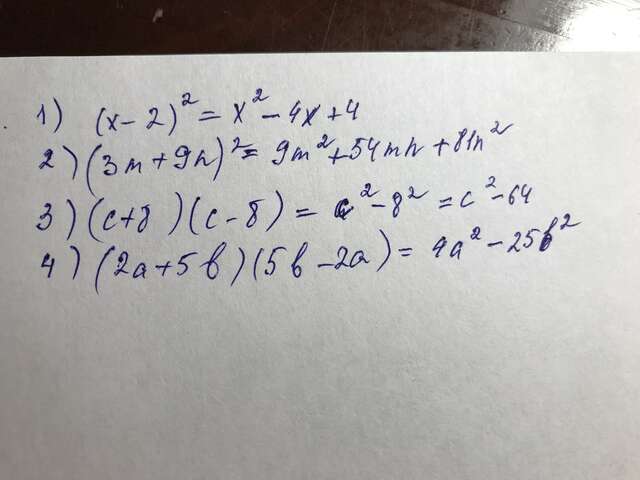 1) (x-2)² = x² - 4x + 4
2) (3m + 9n)² = 9m² + 54mn + 81n²
3) (c+8)(c-8) = c² - 8² = c² - 64
4) (2a + 5b)(5b - 2a) = 4a² - 25b²